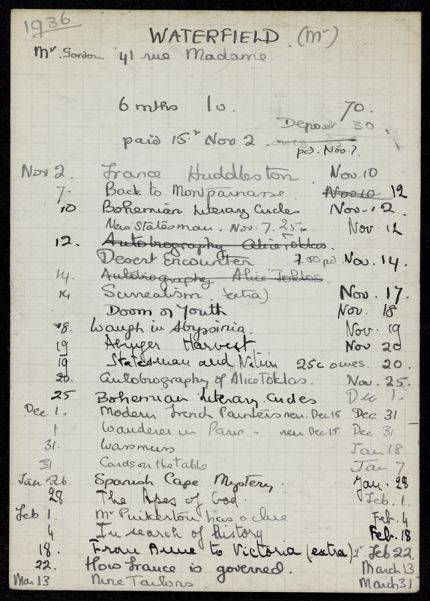 1936
WATERFIELD (Mr)
Mr. Gordon 41 rue Madame
6 mths 1 v. 70.
Deposit 30
paid 15r Nov 2
pd. Nov. 7.
Nov 2. France Huddleston Nov. 10
7. Back to Montparnasse. Nov 10 12
10 Bohemian Literary Circles Nov. 12.
New Statesman. Nov. 7. 25c Nov. 12
12. Autobiography Alice Toklas.
Desert Encounter pd Nov. 14.
14. Autobiography Alice Toklas.
14 Surrealism. (extra) Nov. 17.
Doom of Youth Nov. 18
18. Waugh in Abyssinia. Nov. 19
19 Abinger Harvest Nov 20
19 Statesman and Nation 25c owes. 20.
20. Autobiography of Alice Toklas. Nov. 25.
25 Bohemian Literary Circles Dec 1.
Dec 1. Modern French Painters ren. Dec 15 Dec 31
1 Wanderer in Paris - ren Dec 15 Dec 31
31. Wassmuss Jan 18
31 Cards on the Table Jan 7
Jan 26. Spanish Cape Mystery. Jan. 28
28 The Apes of God. Feb. 1
Feb 1. Mr Pinkerton has a clue Feb. 4
4 In search of History Feb. 18
18. From Anne to Victoria (extra) Feb 22.
22. How France is governed. March 13
Mar 13 Nine Tailors March 31